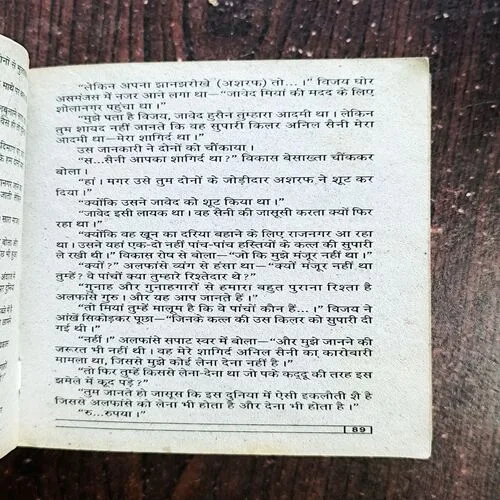 "लेकिन अपना झानझरोखे (अशरफ) तो...।" विजय घोर
असमंजस में नजर आने लगा था—"जावेद मियां की मदद के लिए
शोलानगर पहुंचा था।"
"मुझे पता है विजय, जावेद हुसैन तुम्हारा आदमी था। लेकिन
तुम शायद नहीं जानते कि वह सुपारी किलर अनिल सैनी मेरा
आदमी था—मेरा शागिर्द था।"
उस जानकारी ने दोनों को चौंकाया।
"स...सैनी आपका शागिर्द था?" विकास बेसाख्ता चौंककर
बोला।
"हां। मगर उसे तुम दोनों के जोड़ीदार अशरफ ने शूट कर
दिया।"
"क्योंकि उसने जावेद को शूट किया था।"
"जावेद इसी लायक था। वह सैनी की जासूसी करता क्यों फिर
रहा था।"
"क्योंकि वह खून का दरिया बहाने के लिए राजनगर आ रहा
था। उसने यहां एक-दो नहीं पांच-पांच हस्तियों के कत्ल की सुपारी
ले रखी थी।" विकास रोष से बोला—"जो कि मुझे मंजूर नहीं था।"
"क्यों?" अलफांसे व्यंग से हंसा था—"क्यों मंजूर नहीं था
तुम्हें? वे पांचों क्या तुम्हारे रिश्तेदार थे?"
"गुनाह और गुनाहगारों से हमारा बहुत पुराना रिश्ता है
अलफांसे गुरु। और यह आप जानते हैं।"
"तो मियां तुम्हें मालूम है कि वे पांचों कौन हैं...।" विजय ने
आंखें सिकोड़कर पूछा—"जिनके कत्ल की उस किलर को सुपारी दी
गई थी।"
"नहीं।" अलफांसे सपाट स्वर में बोला—"और मुझे जानने की
जरूरत भी नहीं थी। वह मेरे शागिर्द अनिल सैनी का कारोबारी
मामला था, जिससे मुझे कोई लेना देना नहीं है।"
"तो फिर तुम्हें किससे लेना-देना था जो पके कद्दू की तरह इस
झमेले में कूद पड़े?"
"तुम जानते हो जासूस कि इस दुनिया में ऐसी इकलौती शै है
जिससे अलफांसे को लेना भी होता है और देना भी होता है।"
"रु...रुपया।"
89